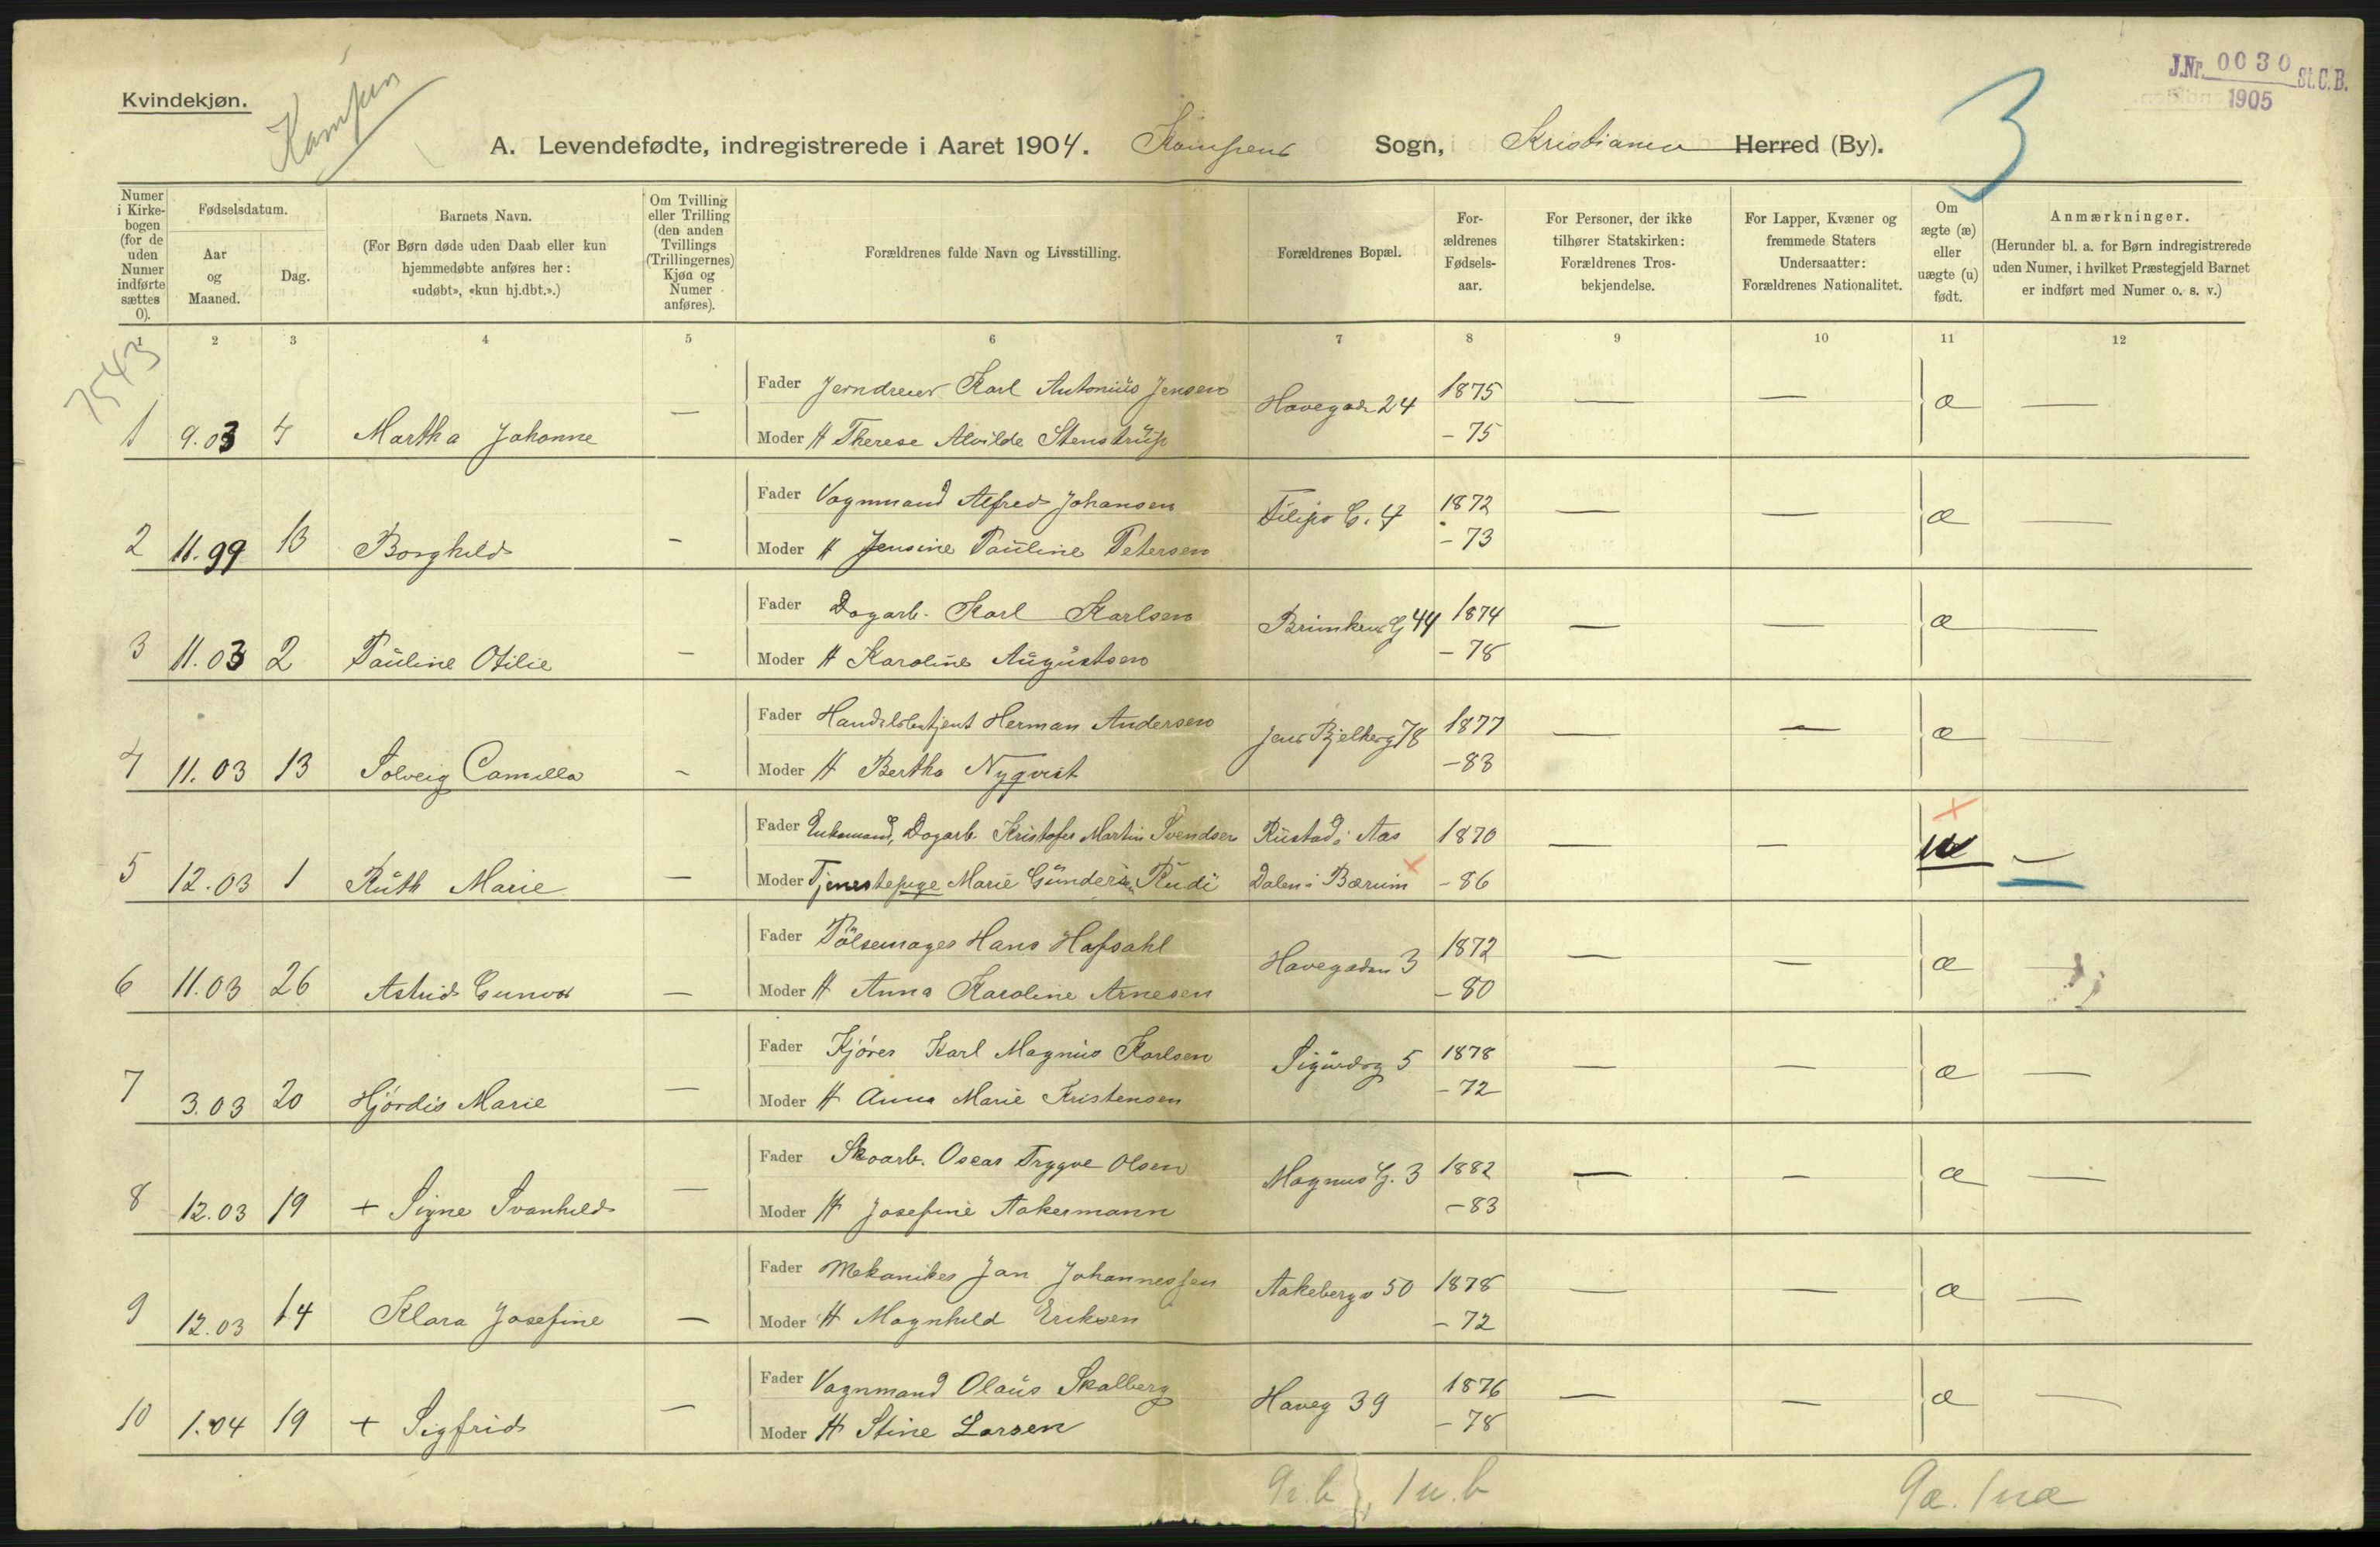 Kvindekjøn.
Kampen
J.Nr. 0030 St.C.B.
1905
3
A. Levendefødte, indregistrerede i Aaret 1904. Kampens Sogn, Kristiania Herred (By).
Numer i Kirkebogen (for de uden Numer indførte sættes 0).
Fødselsdatum.
Aar og Maaned.
Dag.
Barnets Navn.
(For Børn døde uden Daab eller kun hjemmedøbte anføres her: «udøbt», «kun hj.dbt.».)
Om Tvilling eller Trilling (den anden Tvillings (Trillingernes) Kjøn og Numer anføres).
Forældrenes fulde Navn og Livsstilling.
Forældrenes Bopæl.
Forældrenes Fødselsaar.
For Personer, der ikke tilhører Statskirken: Forældrenes Trosbekjendelse.
For Lapper, Kvæner og fremmede Staters Undersaatter: Forældrenes Nationalitet.
Om ægte (æ) eller uægte (u) født.
Anmærkninger.
(Herunder bl. a. for Børn indregistrerede uden Numer, i hvilket Præstegjeld Barnet er indført med Numer o. s. v.)
1 2 3 4 5 6 7 8 9 10 11 12
7543
Fader Jerndreier Karl Antonius Jensen Havegade 24 1875 — — æ —
1 9.03 4 Martha Johanne — Moder H Therese Alvilde Stenstrup - 75
Fader Vognmand Alfred Johansen Filips G. 4 1872 — — æ —
2 11.99 13 Borghild — Moder H Jensine Pauline Petersen - 73
Fader Dagarb. Karl Karlsen Brinken G 44 1874 — — æ —
3 11.03 2 Pauline Otilie — Moder H Karoline Augustsen - 78
Fader Handelsbetjent Herman Andersen Jens Bjelkeg 78 1877 — — æ —
4 11.03 13 Solveig Camilla — Moder H Bertha Nyqvist - 83
Fader Enkemand, Dagarb. Kristofer Martin Svendsen Rustad i Aas 1870 — — u —
5 12.03 1 Ruth Marie — Moder Tjenestepige Marie Gundersen Rudi Dalen i Bærum - 86
Fader Pölsemager Hans Hafsahl Havegaden 3 1872 — — æ —
6 11.03 26 Astrid Gunvor — Moder H Anna Karoline Arnesen - 80
Fader Kjörer Karl Magnus Karlsen Sigurdsg 5 1878 — — æ —
7 3.03 20 Hjördis Marie — Moder H Anna Marie Kristensen - 72
Fader Skoarb. Oscar Trygve Olsen Magnus G. 3 1882 — — æ —
8 12.03 19 + Signe Svanhild — Moder H Josefine Aakermann - 83
Fader Mekaniker Jan Johannessen Aakebergv 50 1878 — — æ —
9 12.03 14 Klara Josefine — Moder H Magnhild Eriksen - 72
Fader Vognmand Olaus Skalberg Haveg 39 1876 — — æ —
10 1.04 19 + Sigfrid — Moder H Stine Larsen - 78
1 u.b 9æ. 1uæ